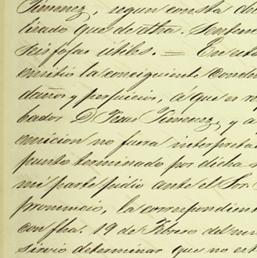 Jimenez, segun consta de
lizado que de otra.
seis fojas útiles. = En esta
emitio la consiguiente conde
daños y perjuicios, á que es re
bador D. Juan Jimenez, y a
emision no fuera interpreta
punto terminado por dicha s
mi parte pidio ante el Sor.
pronuncio, la correspondien
con fha. 19 de Febrero del me
sirvio determinar que no est